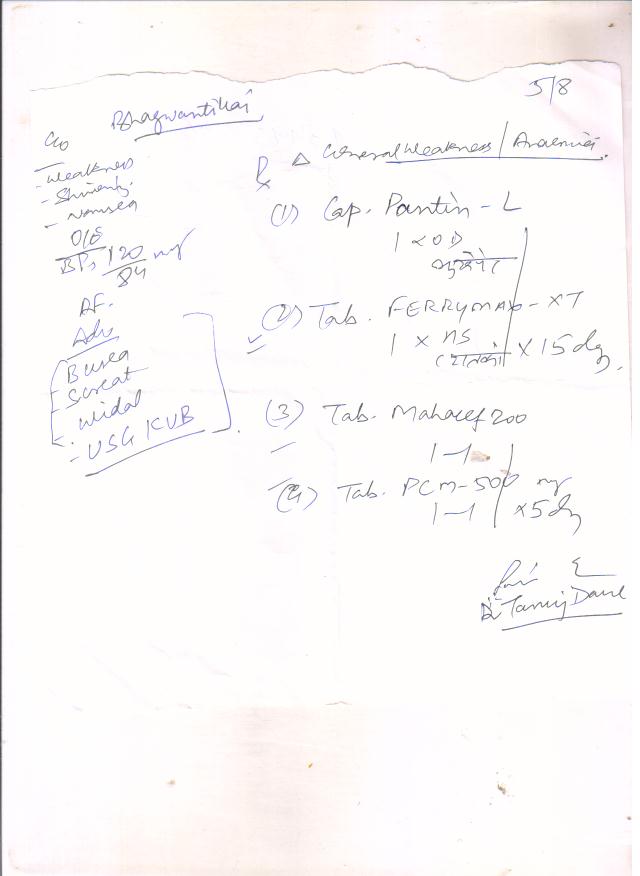 5/8
Bhagwantibai
C/o
- Weakness
- Nausea
O/E
BP: 120/84 mg
AF.
Adv
- B urea
- S creat
- widal
- USG KUB
Rx
Δ General weakness / Anaemia.
(1) Cap. Pantin - L
1 x OD
(2) Tab. FERRYMAX - XT
1 x HS
x 15 dy.
(3) Tab. Mahacef 200
1-1
(4) Tab. PCM-500 mg
1-1 x5 dy
Dr Tanuj